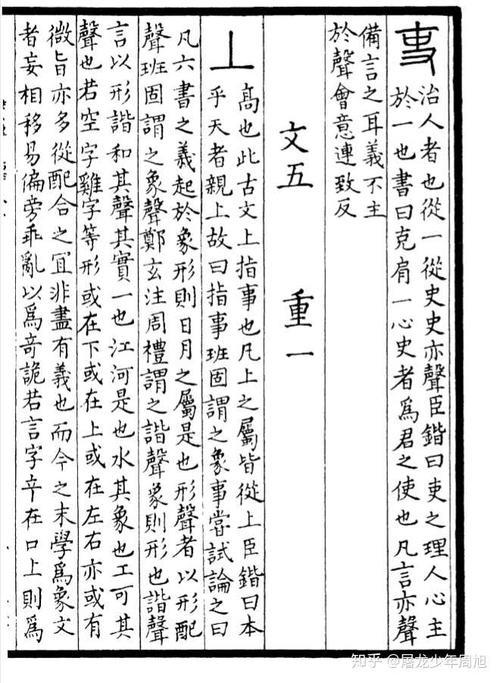 吏
治人者也從一從史史亦聲臣鍇曰吏之理人心主
於一也書曰克肩一心史者爲君之使也凡言亦聲
備言之耳義不主
於聲會意連致反
文五 重一
丄
高也此古文上指事也凡上之屬皆從上臣鍇曰本
乎天者親上故曰指事班固謂之象事嘗試論之曰
凡六書之義起於象形則日月之屬是也形聲者以形配
聲班固謂之象聲鄭玄注周禮謂之諧聲象則形也諧聲
言以形諧和其聲其實一也江河是也水其象也工可其
聲也若空字雞字等形或在下或在上或在左右亦或有
微旨亦多從配合之宜非盡有義也而今之末學爲象文
者妄相移易偏旁乖亂以爲奇詭若言字辛在口上則爲
知乎 @屠龙少年周旭